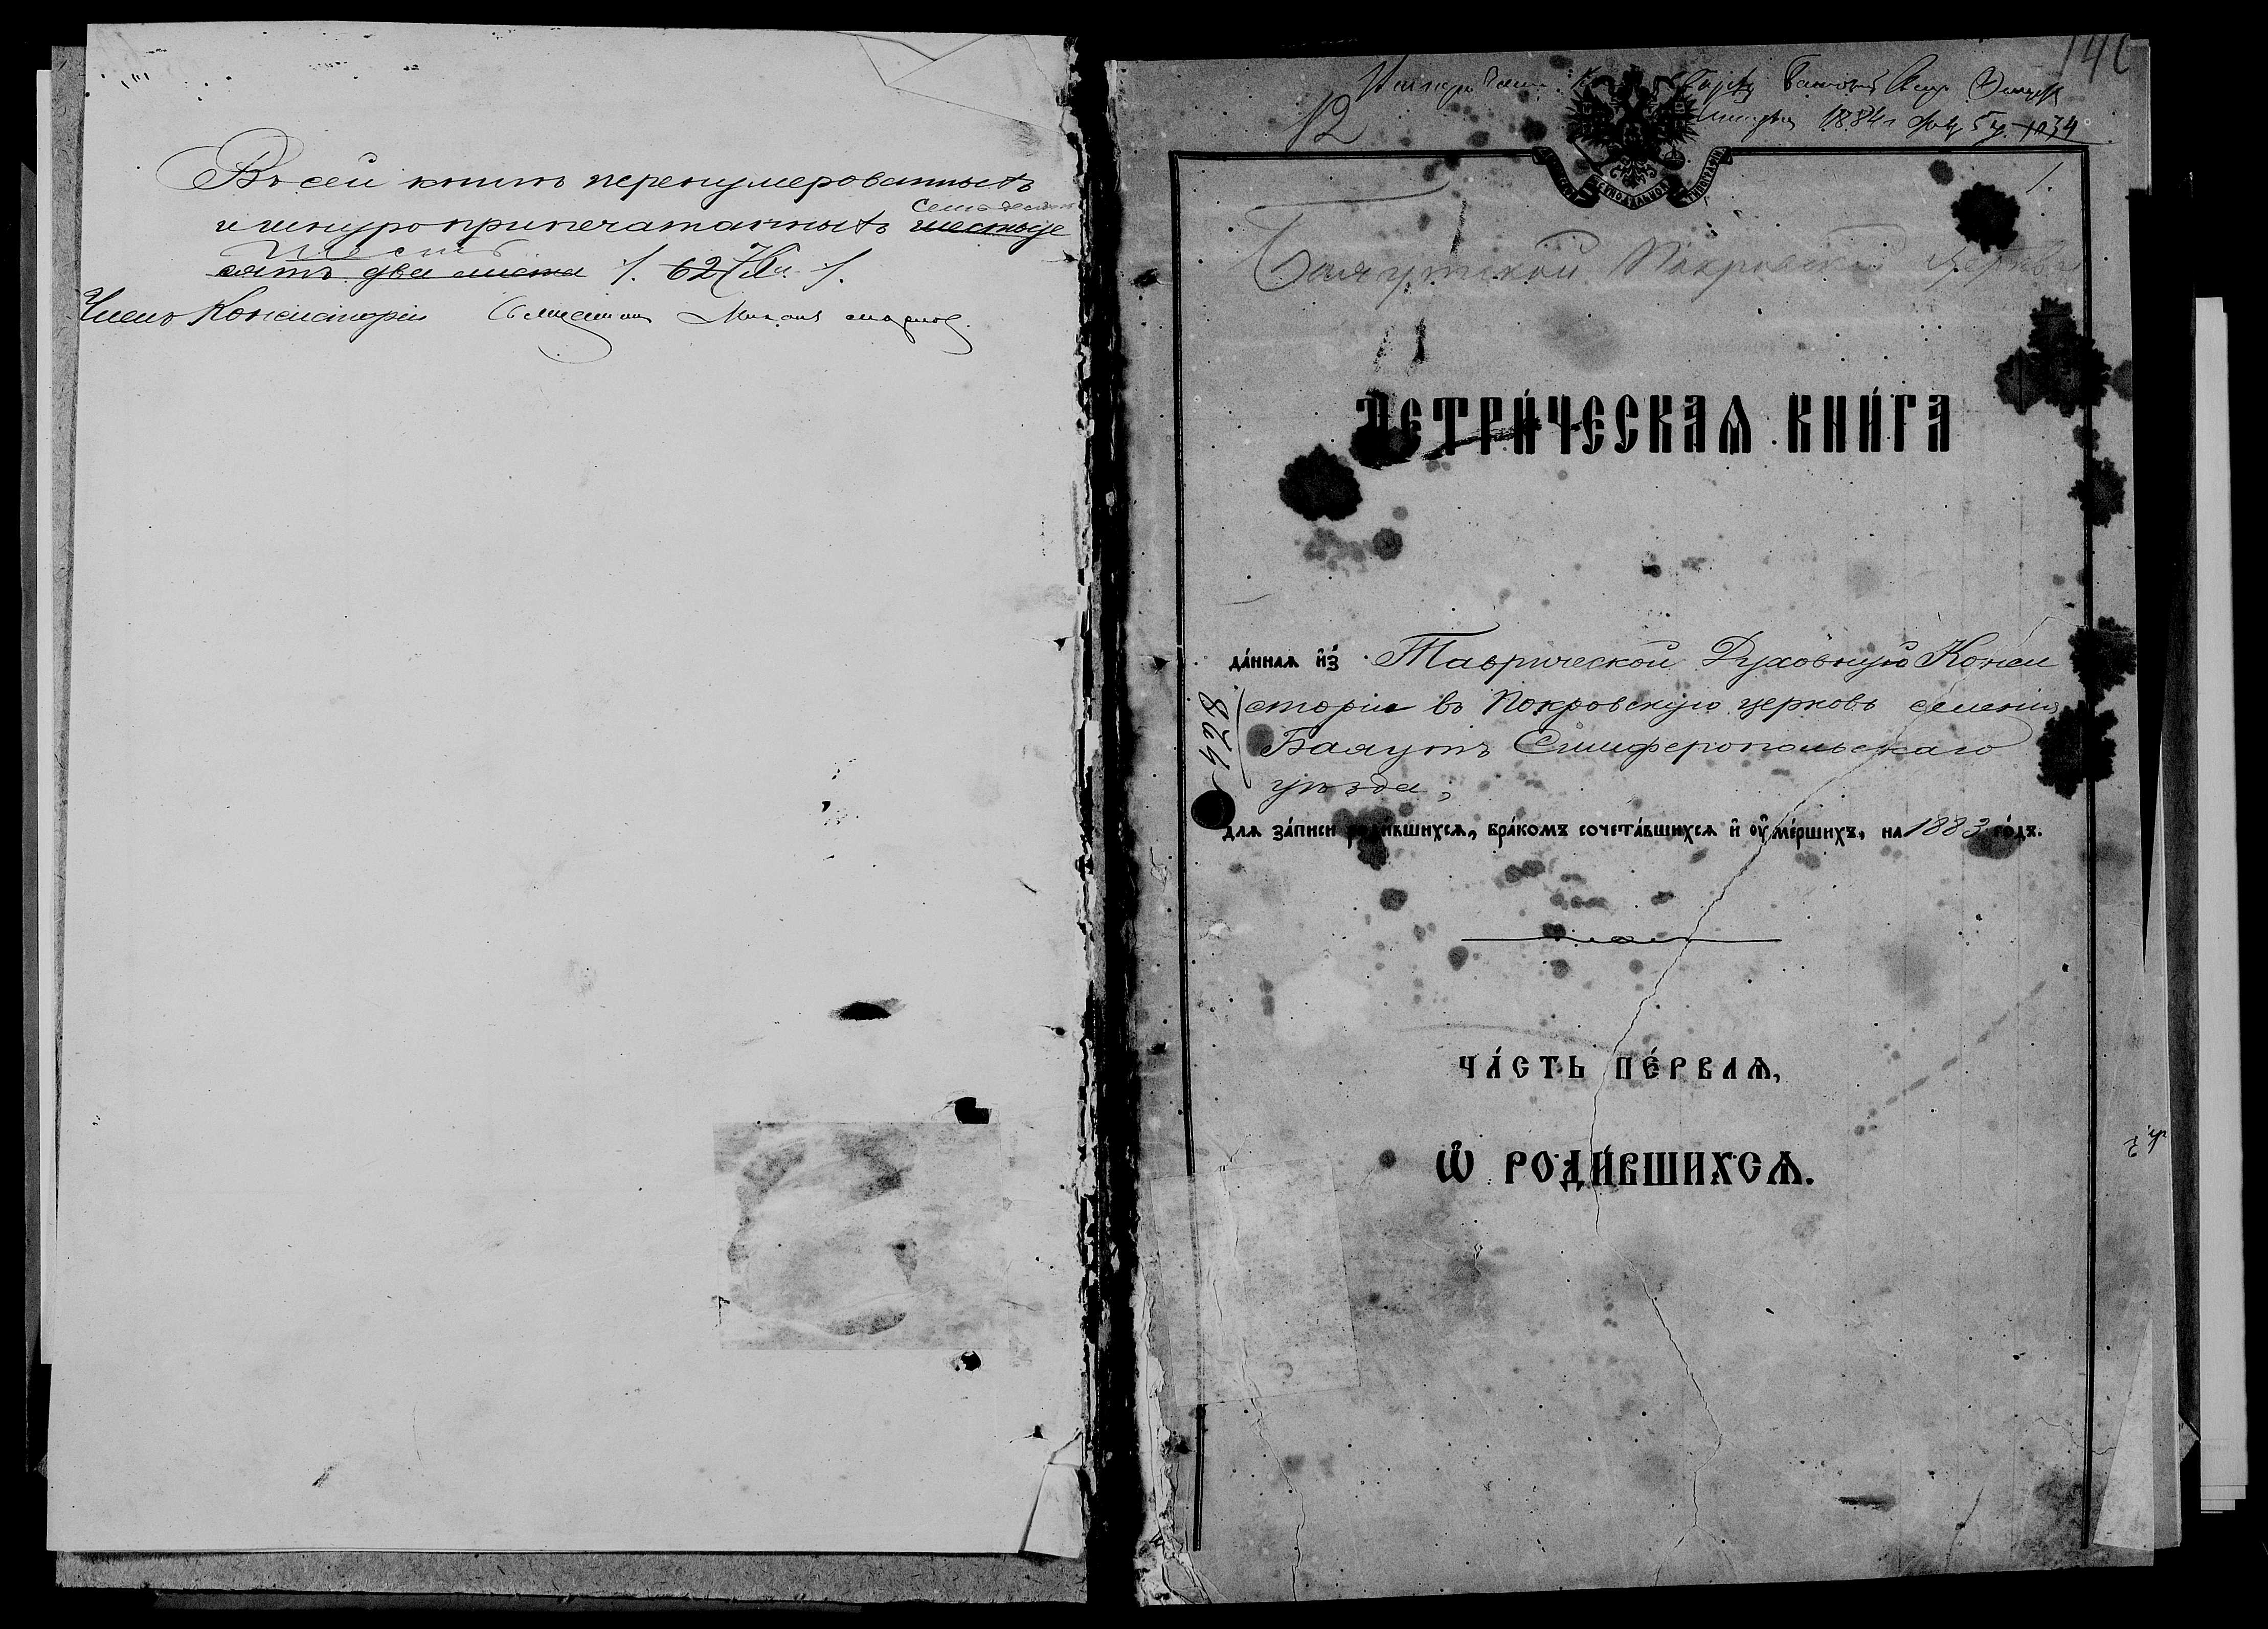 Въ сей книгѣ перенумерованныхъ
и шнуроприпечатанныхъ шестьде
семьдесят
шесть
сятъ два листа /. 62 76 л. /.
Членъ Консисторіи Священникъ Михаилъ
12
1884 г.
1.
Баяутской Покровской церкви
МЕТРИ́ЧЕСКАѦ КНИ́ГА
да́ннаѧ и҆зъ Таврической Духовной Конси
сторіи въ Покровскую церковь селенія
Баяутъ Симферопольскаго
уѣзда,
824
для за́писи роди́вшихсѧ, бра́комъ сочета́вшихсѧ и҆ ᲂу҆ме́ршихъ, на 1883 го́дъ.
ЧА́СТЬ ПЕ́РВАѦ,
Ѽ РОДИ́ВШИХСѦ.